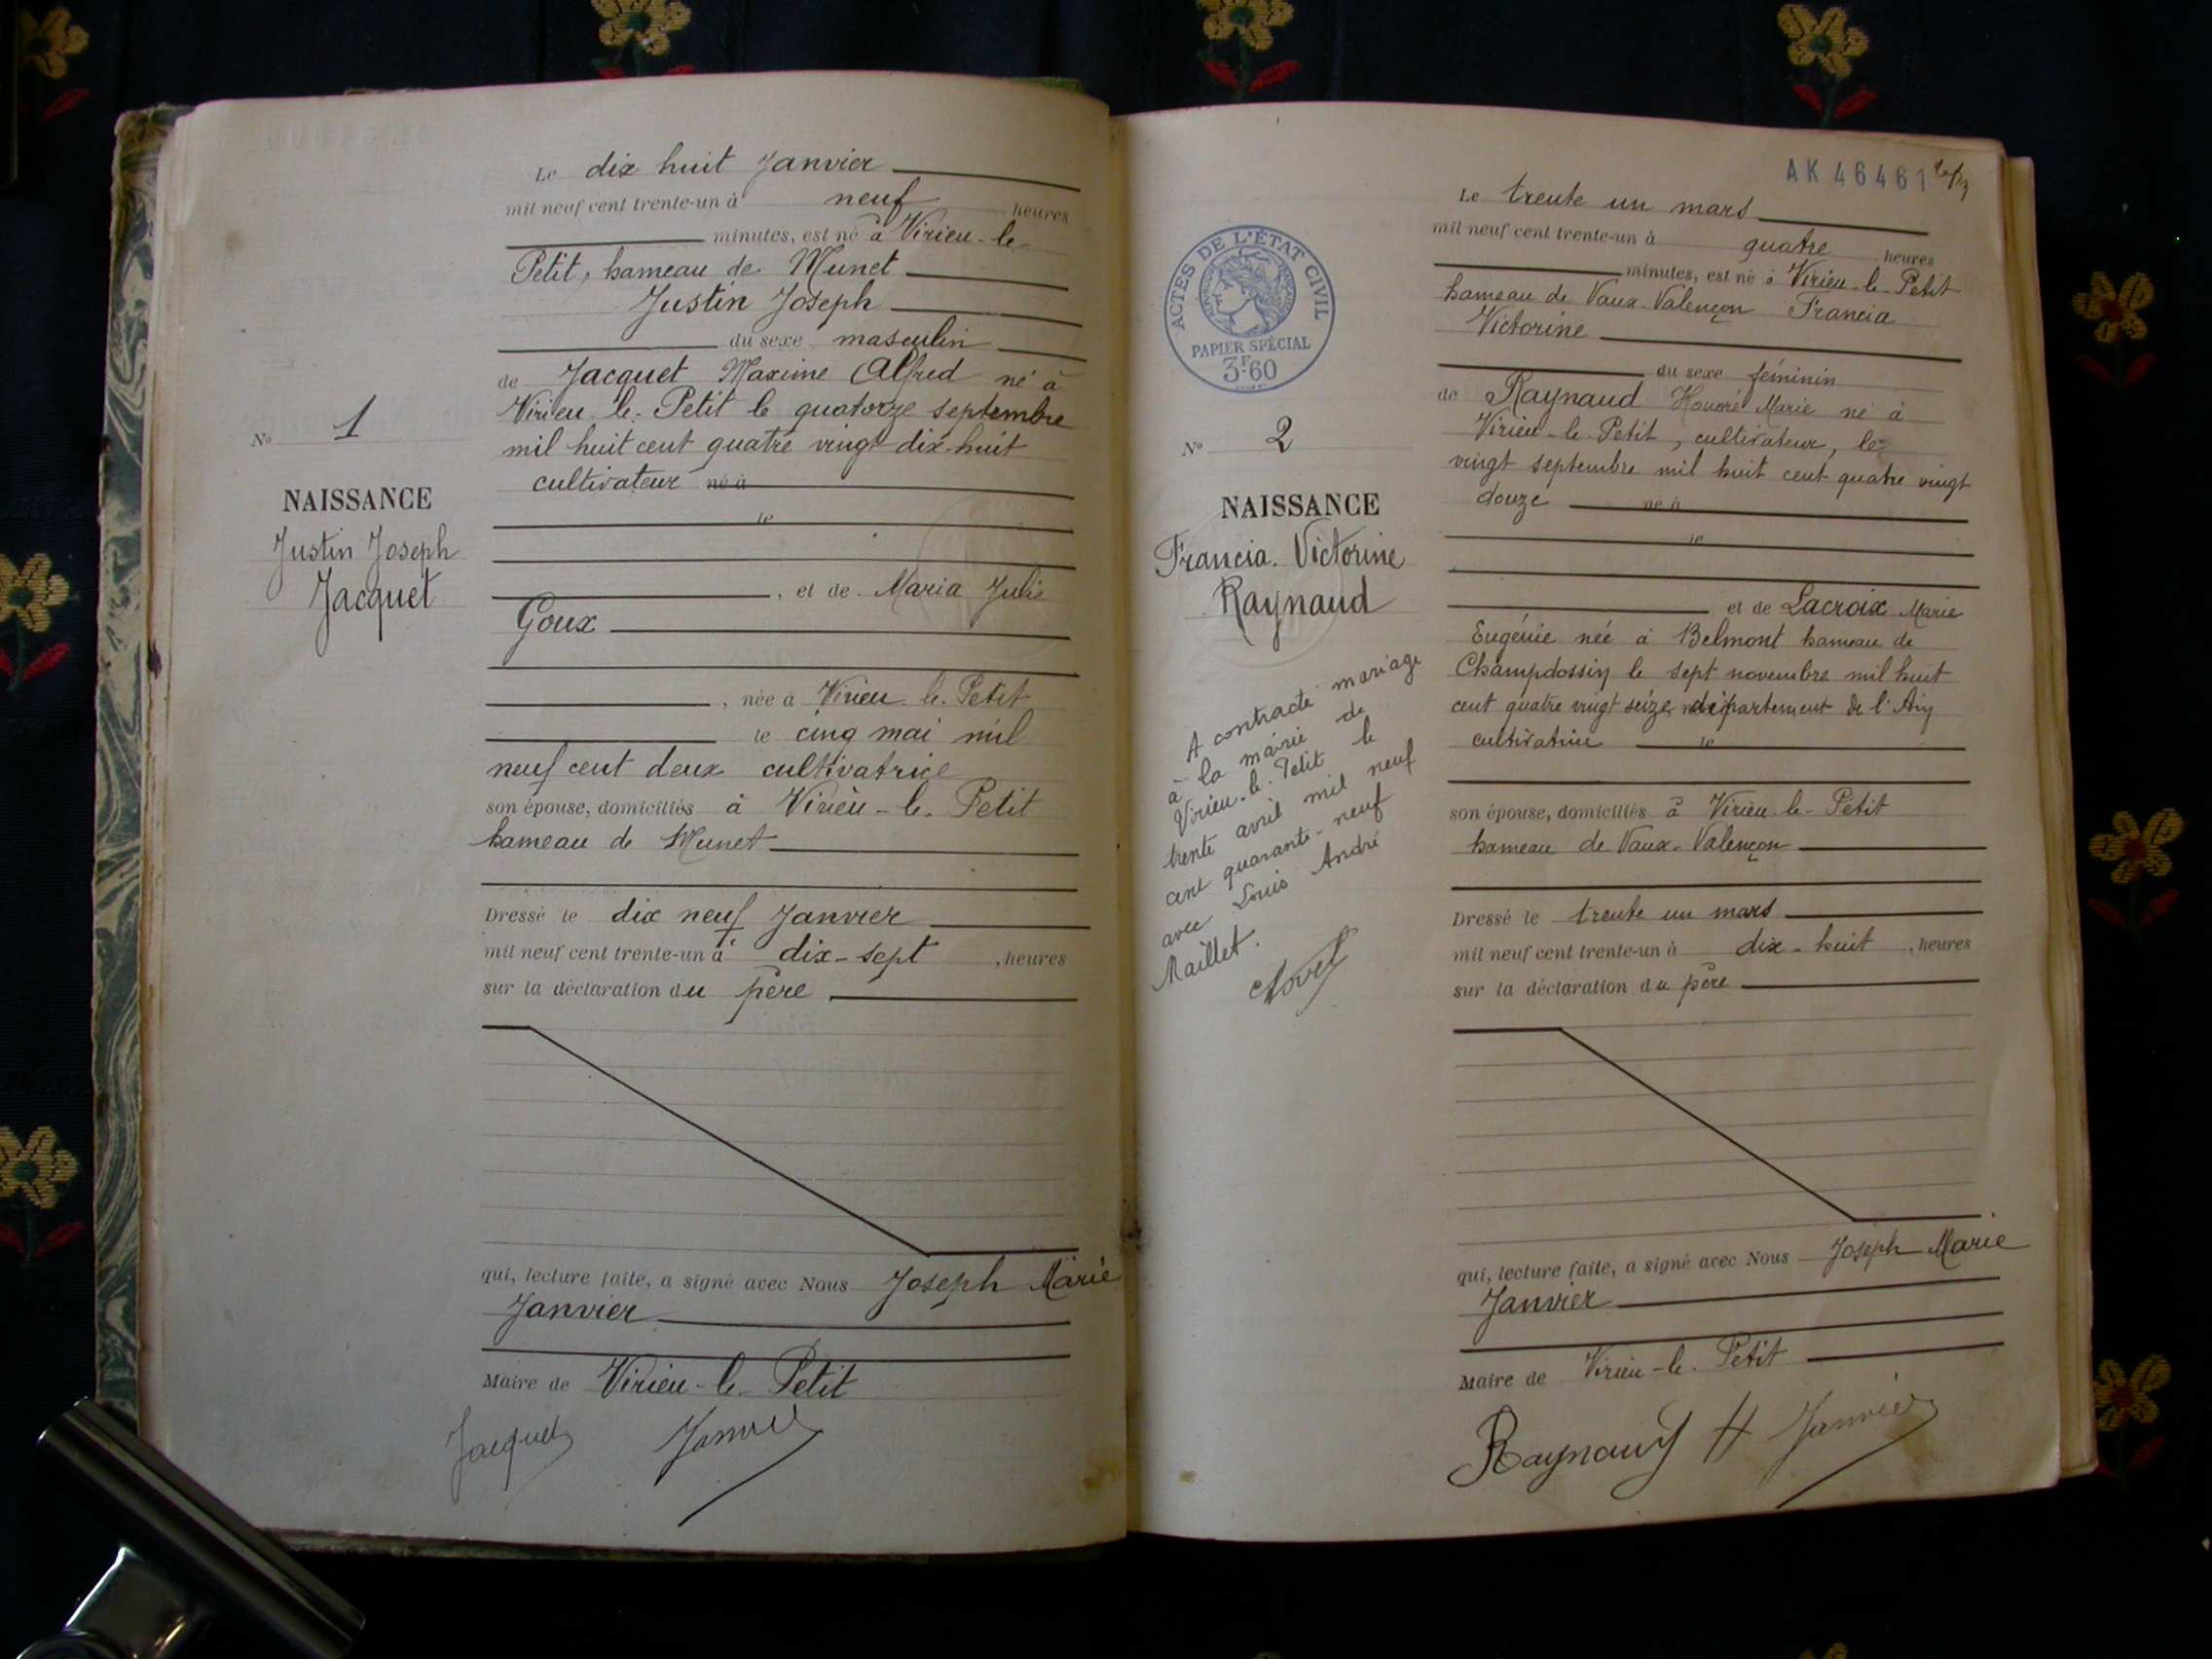 Le dix huit Janvier
mil neuf cent trente-un à neuf heures
minutes, est né à Virieu-le-
Petit, hameau de Munet
Justin Joseph
du sexe masculin
de Jacquet Maxime Alfred né à
Virieu-le-Petit le quatorze septembre
mil huit cent quatre vingt dix-huit
cultivateur né à
le
, et de Maria Julie
Goux
, née à Virieu-le-Petit
le cinq mai mil
neuf cent deux cultivatrice
son épouse, domiciliés à Virieu-le-Petit
hameau de Munet
Dressé le dix neuf Janvier
mil neuf cent trente-un à dix-sept , heures
sur la déclaration du père
qui, lecture faite, a signé avec Nous Joseph Marie
Janvier
Maire de Virieu-le-Petit
Jacquet Janvier
No 1
NAISSANCE
Justin Joseph
Jacquet
AK 46461
ACTES DE L'ÉTAT CIVIL
PAPIER SPÉCIAL
3F60
No 2
NAISSANCE
Francia. Victorine
Raynaud
A contracté mariage
à la mairie de
Virieu-le-Petit le
trente avril mil neuf
cent quarante-neuf
avec Louis André
Maillet.
Le trente un mars
mil neuf cent trente-un à quatre heures
minutes, est né à Virieu-le-Petit
hameau de Vaux-Valençon Francia
Victorine
du sexe féminin
de Raynaud Honoré Marie né à
Virieu-le-Petit, cultivateur, le
vingt septembre mil huit cent quatre vingt
douze né à
le
et de Lacroix Marie
Eugénie née à Belmont hameau de
Champdossin le sept novembre mil huit
cent quatre vingt seize département de l'Ain
cultivatrice le
son épouse, domiciliés à Virieu-le-Petit
hameau de Vaux-Valençon
Dressé le trente un mars
mil neuf cent trente-un à dix-huit , heures
sur la déclaration du père
qui, lecture faite, a signé avec Nous Joseph Marie
Janvier
Maire de Virieu-le-Petit
Raynaud H Janvier